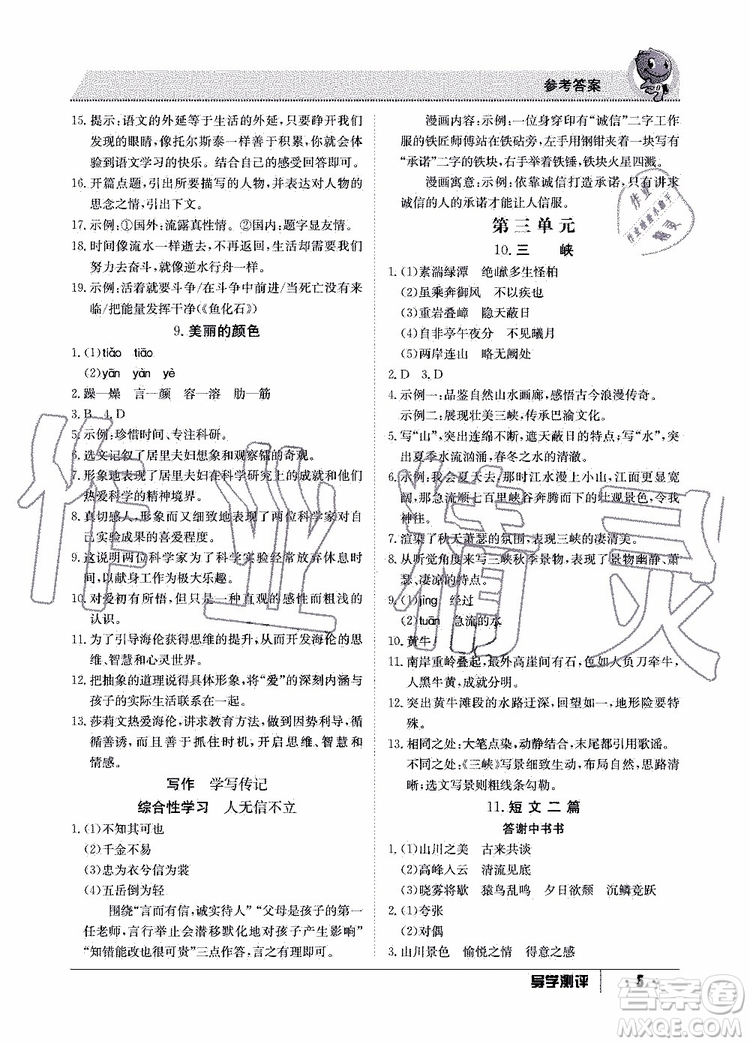 参考答案
15. 提示：语文的外延等于生活的外延，只要睁开我们
发现的眼睛，像托尔斯泰一样善于积累，你就会体
验到语文学习的快乐。结合自己的感受回答即可。
16. 开篇点题，引出所要描写的人物，并表达对人物的
思念之情，引出下文。
17. 示例：①国外：流露真性情。②国内：题字显情意。
18. 时间像流水一样逝去，所以我们应该珍惜时间，不
断努力去奋斗，就像逆水行舟一样。
19. 示例：活着就要斗争/在斗争中前进/当死亡没有来
临/把能量发挥干净(《鱼化石》)
9. 美丽的颜色
1. (1)tiǎo tiāo
(2)yān yàn yè
2. 躁—燥 言—颜 容—溶 肋—筋
3. B 4. D
5. 示例：珍惜时间、专注科研。
6. 选文记叙了居里夫妇的想象和观察镭的奇观。
7. 形象地表现了居里夫妇在科学研究上表现出他们
热爱科学的精神境界。
8. 真切感人，形象而又细致地表现了两位科学家对
实验成果的喜爱程度。
9. 这说明两位科学家为科学实验经常放弃休息时
间，以工作为极大乐趣。
10. 对爱初有所悟，但只是一种直观的感性而粗浅的
认识。
11. 为了引导海伦获得思维的提升，从而开发海伦的思
维、智慧和心灵世界。
12. 把抽象的道理说得具体形象，将“爱”的深刻内涵与
孩子的实际生活联系在一起。
13. 莎莉文热爱海伦，讲求教育方法，做到因势利导，循
循善诱，而且善于抓住时机，开启思维、智慧和情感。
写作 学写传记
综合性学习 人无信不立
1. (1)不知其可也
(2)千金不易
(3)忠为衣兮信为裳
(4)五岳倒为轻
围绕“言而有信，诚实待人”“父母是孩子的第一
任老师，他们将会潜移默化地对孩子产生影响”
“知错能改也很可贵”三点作答，言之有理即可。
漫画内容：示例：一位身穿印有“诚信”二字工作
服的铁匠师傅站在铁砧旁，左手用钢钳夹着一块写
有“承诺”二字的铁块，右手举着铁锤，铁块火星四溅。
漫画寓意：示例：依靠诚信打造承诺，只有讲求
诚信的人的承诺才能让人信服。
第三单元
10. 三峡
1. (1)素湍绿潭 绝𪩘多生怪柏
(2)虽乘奔御风 不以疾也
(3)重岩叠嶂 隐天蔽日
(4)自非亭午夜分 不见曦月
(5)两岸连山 略无阙处
2. D 3. D
4. 示例一：品鉴自然山水画廊，感悟古今浪漫传奇。
示例二：展现壮美三峡，传承巴渝文化。
5. 写“山”，突出连绵不断，遮天蔽日的特点；写“水”，突
出夏季水流汹涌，春冬之时的清澈。
6. 示例：我会夏天去，那时江水漫上小山，江面开
阔，急流倾泻七百里峡谷奔腾而下的壮观景色，令我
神往。
7. 渲染了秋天萧瑟的氛围，表现三峡的凄清美。
8. 从听觉角度描写三峡秋季景物，表现了景物幽静、萧
瑟、凄凉的特点。
9. (1)jìng 经过
(2)tuān 急流的水
10. 黄牛
11. 南岸重岭叠起，最外高崖间有石，色如人负刀牵牛，
人黑牛黄，成就分明。
12. 突出黄牛滩段的水路迂深，地形险要而又难以
通过。
13. 相同之处：大笔点染，动静结合，末尾都引用歌谣。
不同之处：《三峡》写景细致生动，随季节变化而变化；
选文写景则粗线条勾勒。
11. 短文二篇
答谢中书书
1. (1)山川之美 古来共谈
(2)高峰入云 清流见底
(3)晓雾将歇 猿鸟乱鸣 夕日欲颓 沉鳞竞跃
2. (1)夸张
(2)对偶
3. 山川景色 愉悦之情 得意之感
导学测评
5
作业精灵
答案圈
MXQE.COM